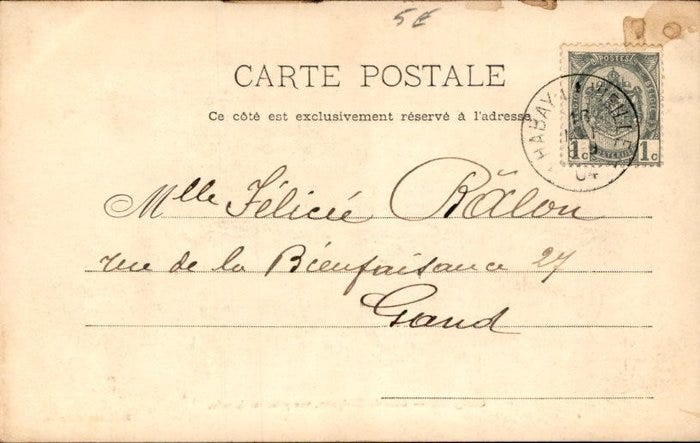 5€
CARTE POSTALE
Ce côté est exclusivement réservé à l'adresse
POSTES
1c 1c
HABAY-LA-VIEILLE
04
Mlle Félicié Rälon
rue de la Bienfaisance 27
Gand